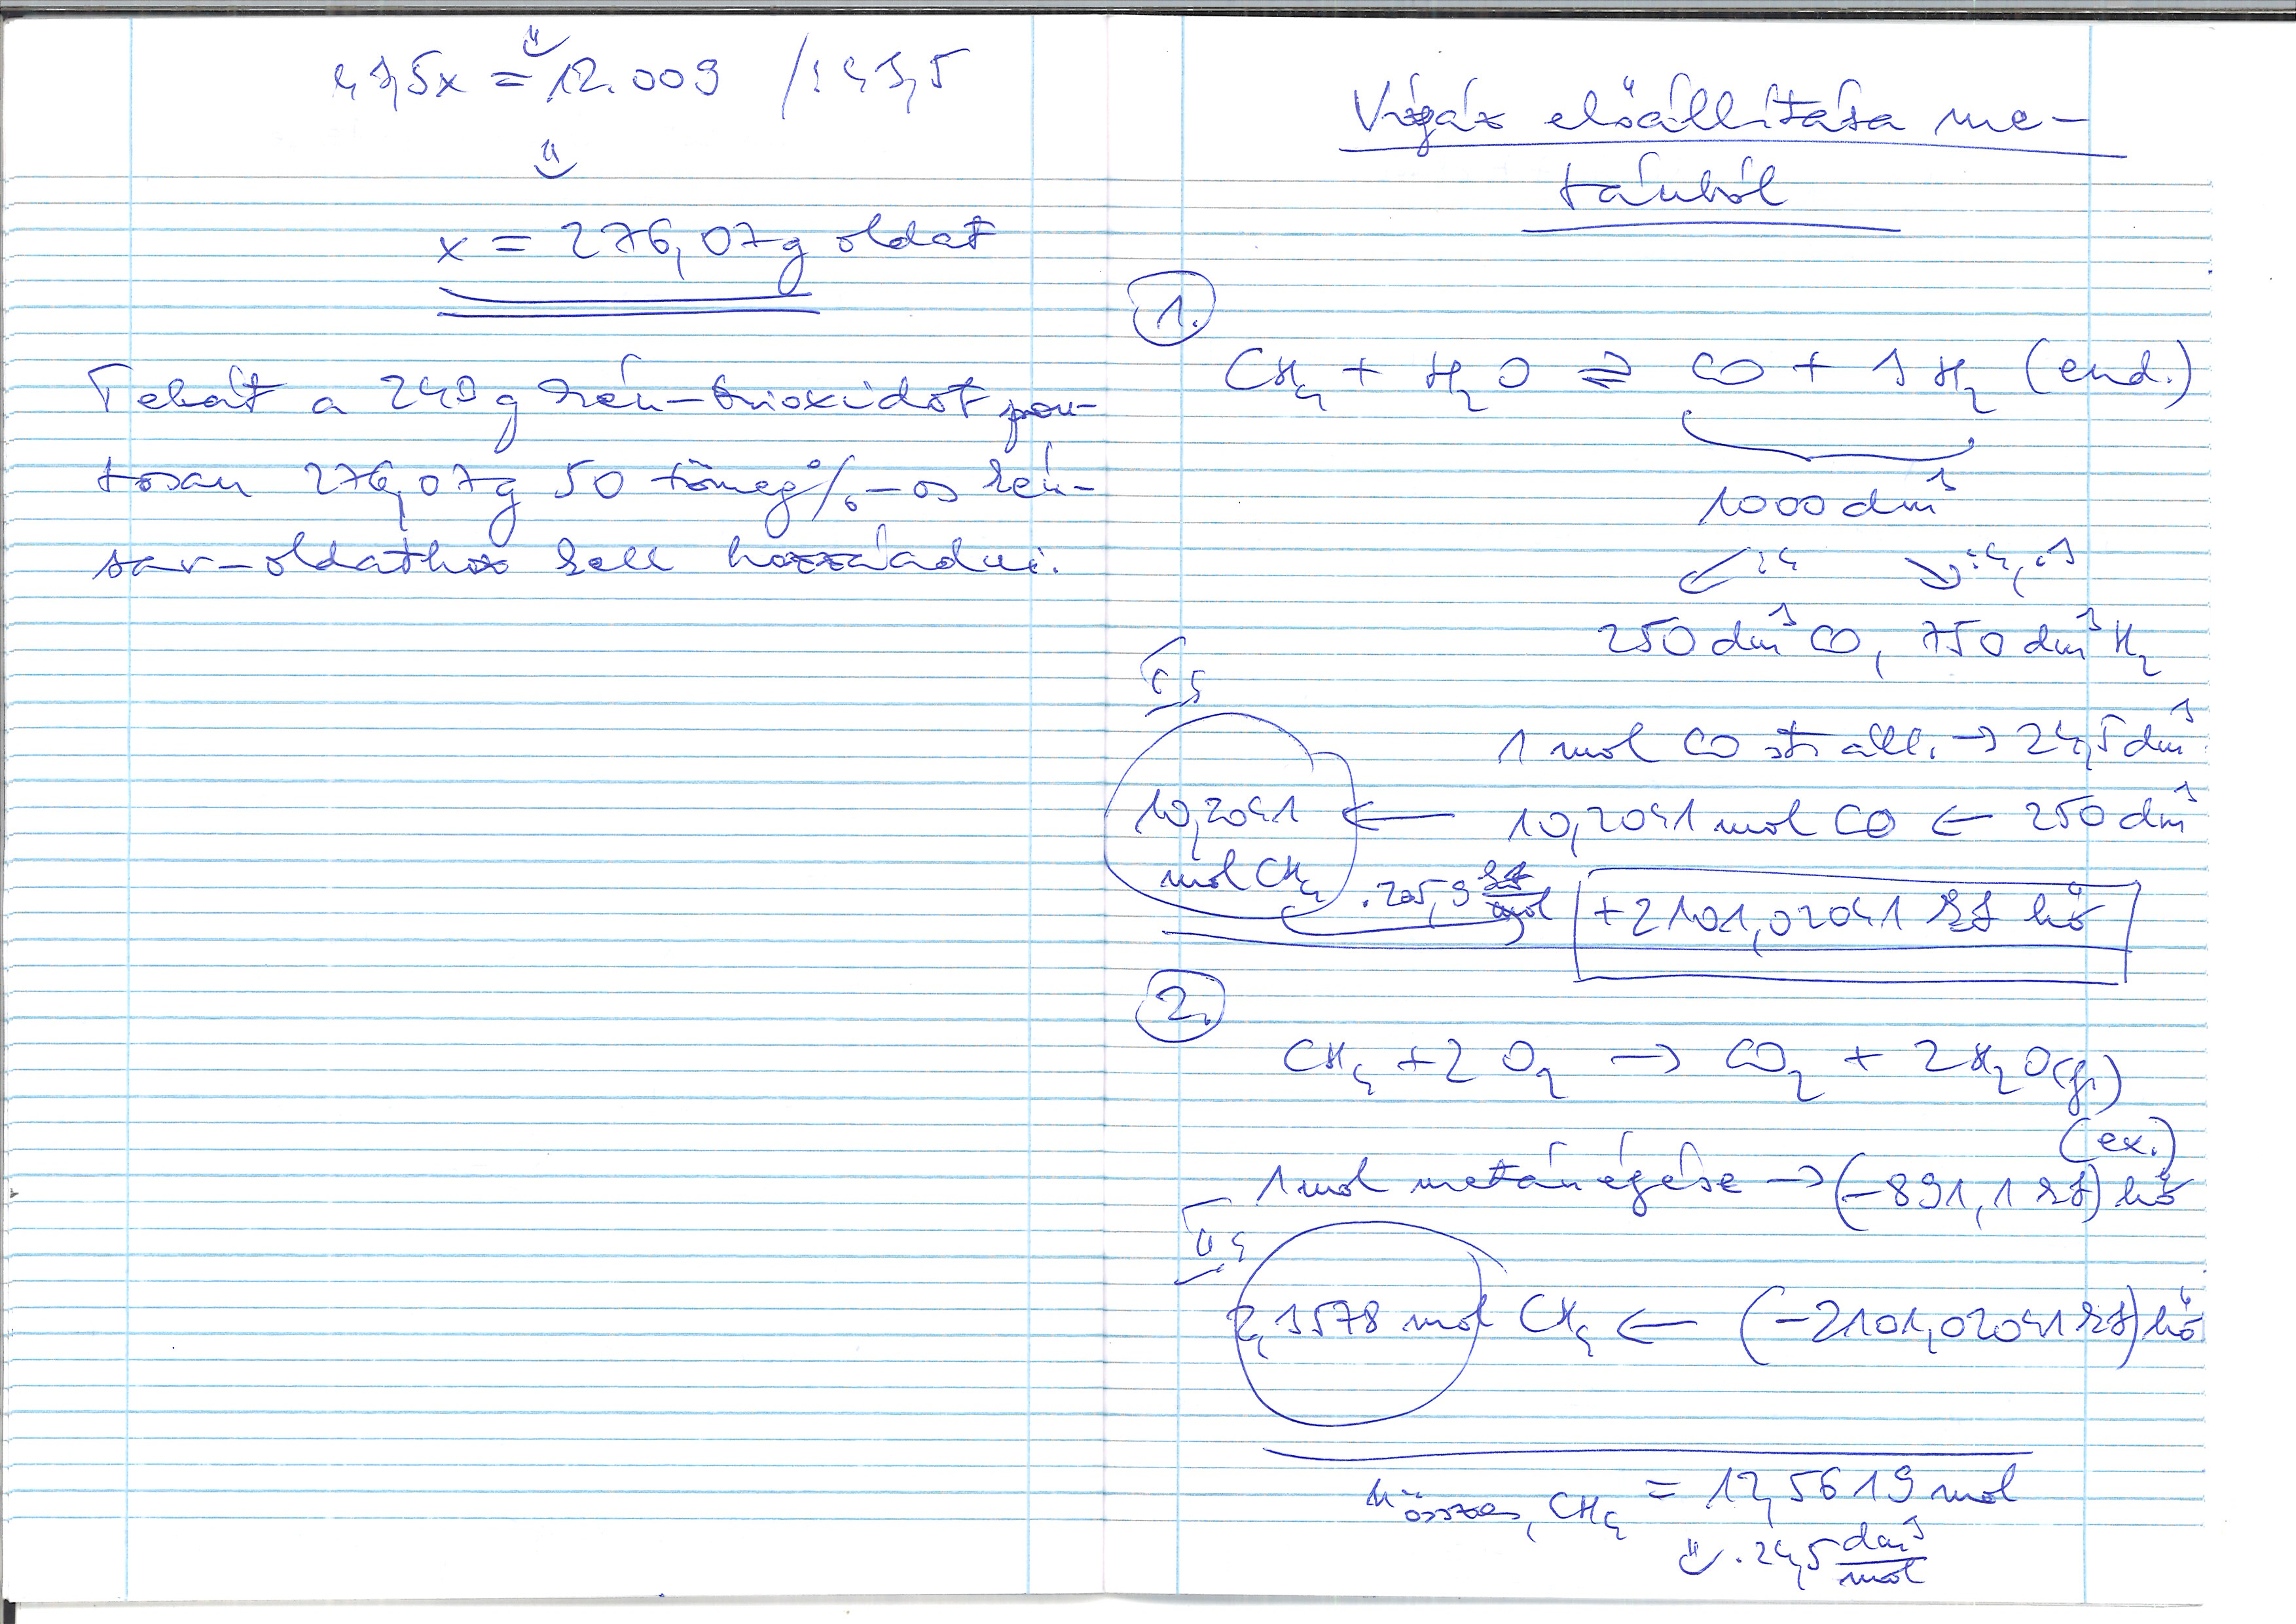 43,5x = 12.009 /:43,5
x = 276,07g oldat
Tehát a 249 g kén-trioxidot pon-
tosan 276,07g 50 tömeg%-os kén-
sav-oldathoz kell hozzáadni.
Vízgáz előállítása me-
tánból
1.
CH₄ + H₂O ⇌ CO + 3 H₂ (end.)
1000 dm³
↙ :4 ↘ :4, ·3
250 dm³ CO, 750 dm³ H₂
Így
1 mol CO st. áll. → 24,5 dm³
10,2041 ← 10,2041 mol CO ← 250 dm³
mol CH₄ · 205,9 kJ/mol +2101,02041 kJ hő
2.
CH₄ + 2 O₂ → CO₂ + 2 H₂O(f.)
(ex.)
1 mol metán égése → (-891,1 kJ) hő
Így
2,3578 mol CH₄ ← (-2101,02041 kJ) hő
n összes, CH₄ = 12,5619 mol
· 24,5 dm³/mol